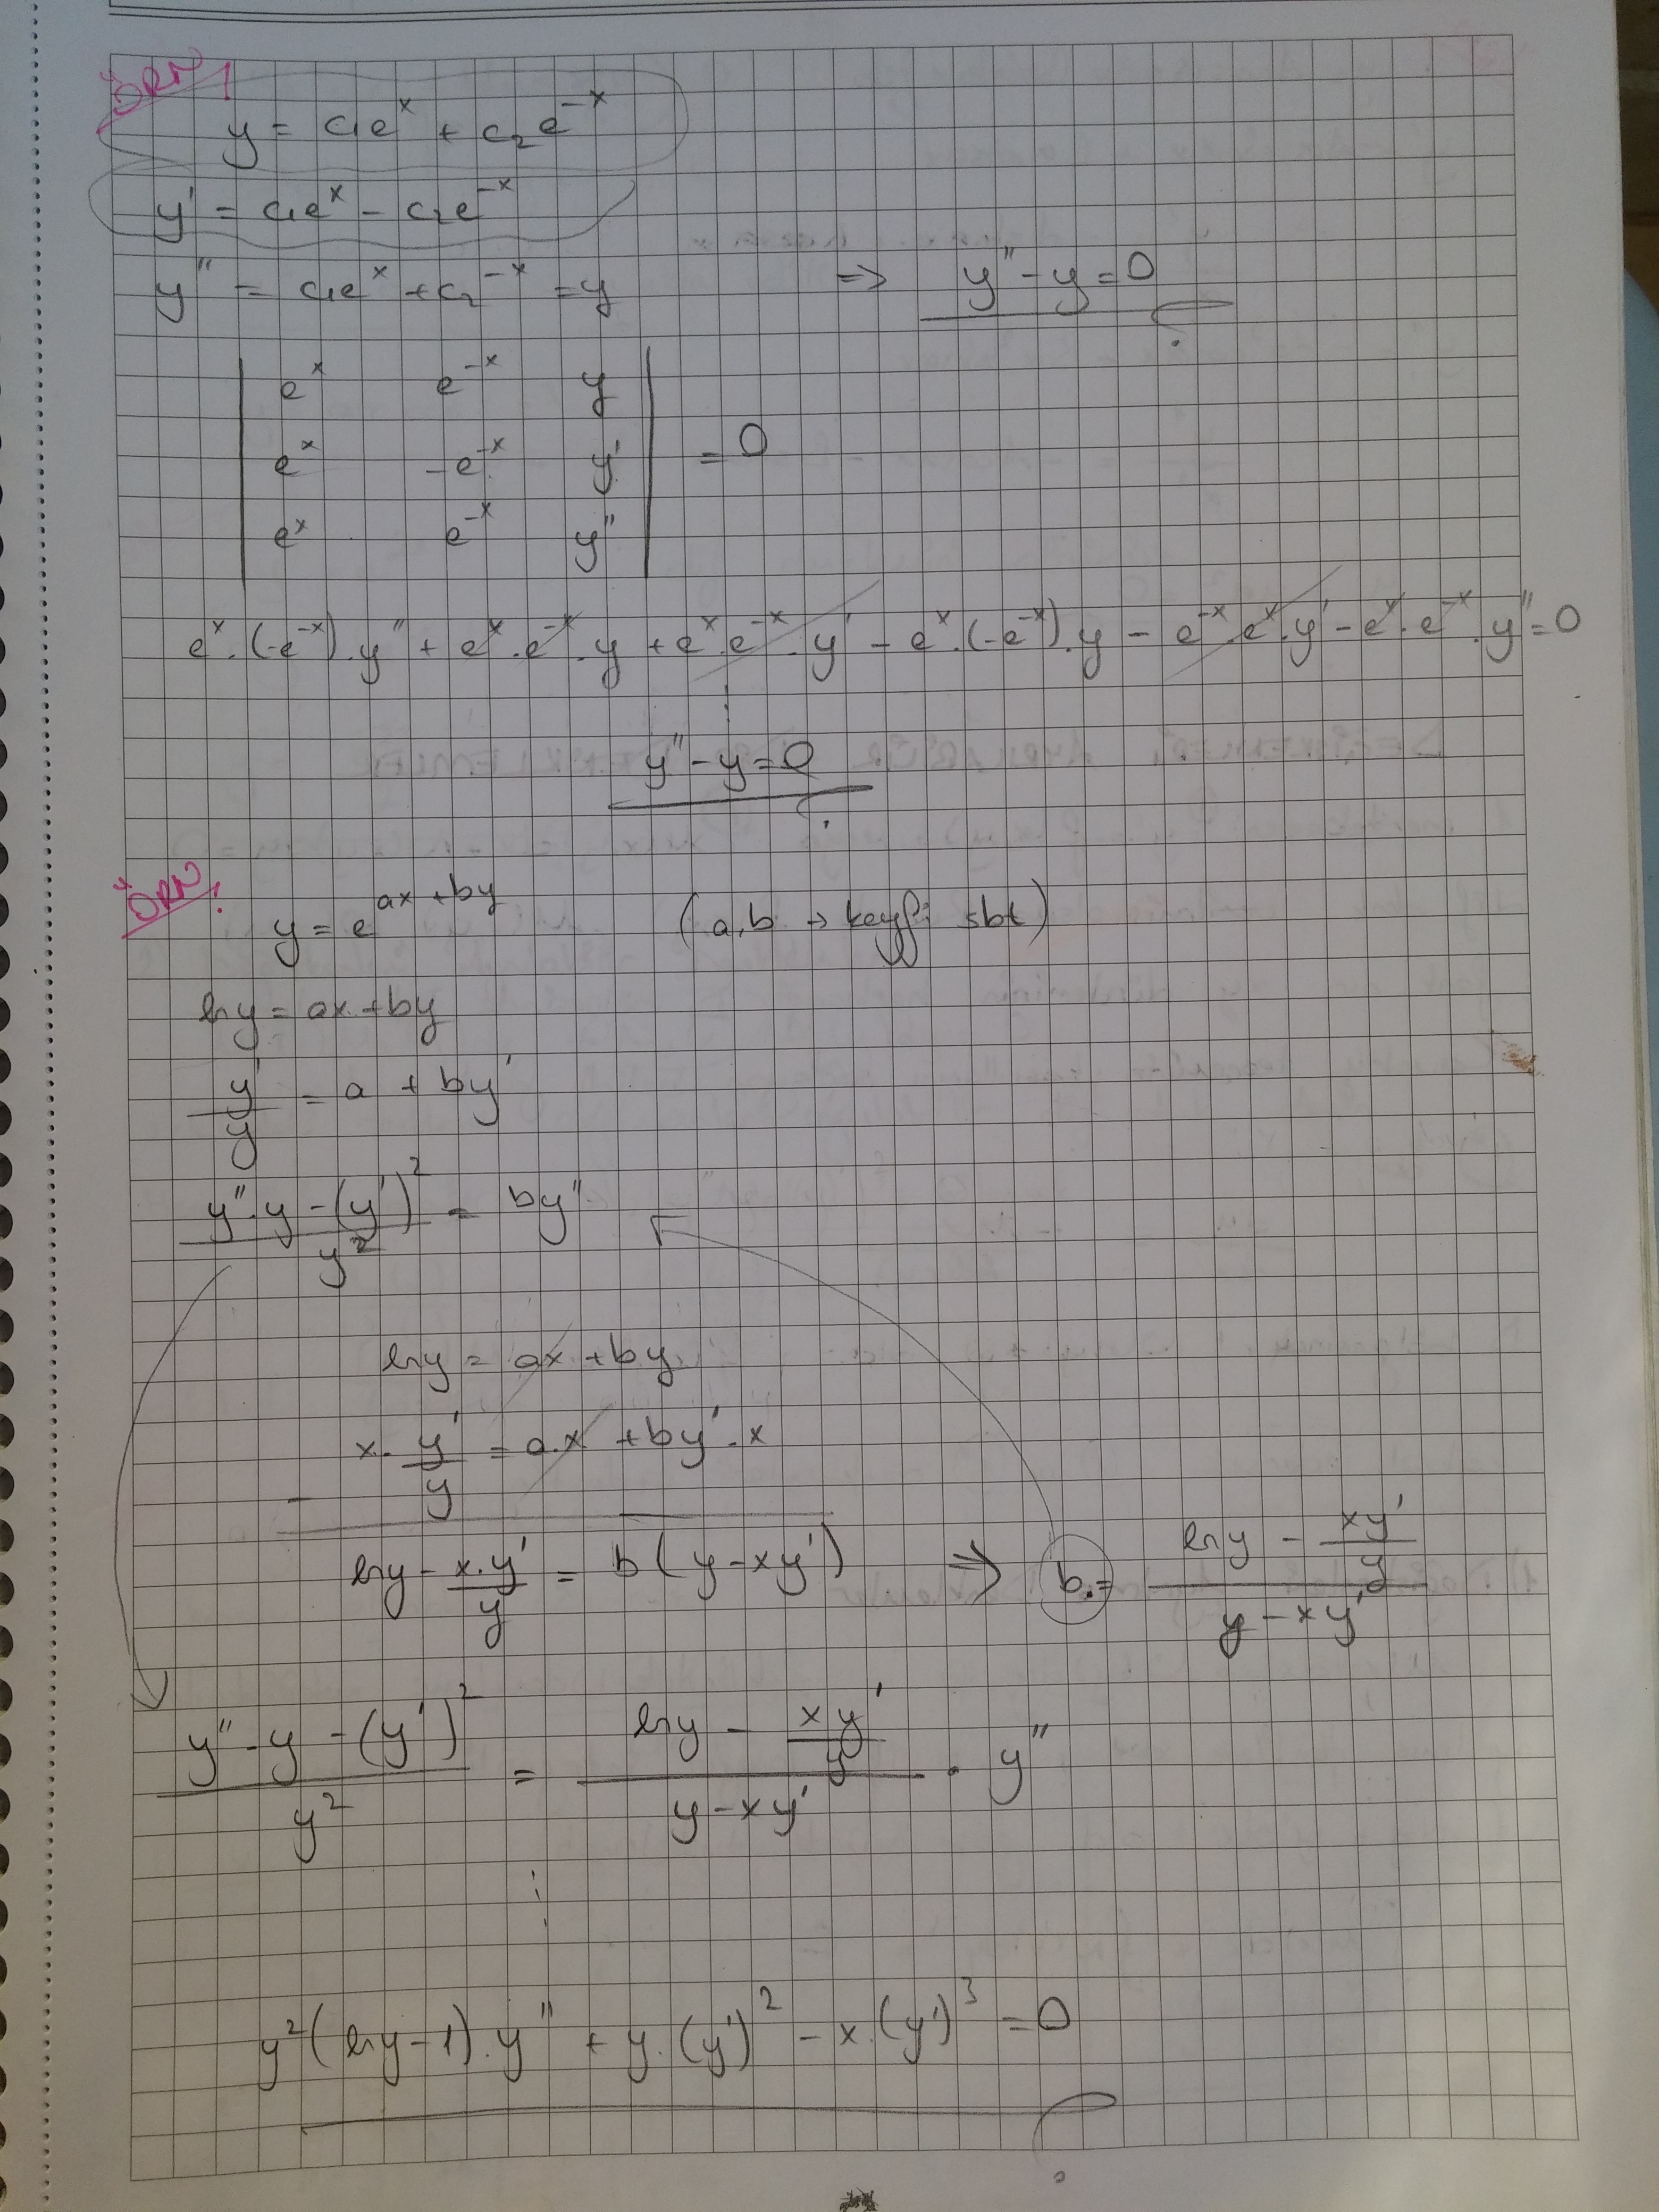 ÖRN/
y = c₁eˣ + c₂e⁻ˣ
y' = c₁eˣ - c₂e⁻ˣ
y'' = c₁eˣ + c₂⁻ˣ = y ⇒ y'' - y = 0
| eˣ e⁻ˣ y |
| eˣ -e⁻ˣ y' | = 0
| eˣ e⁻ˣ y'' |
eˣ.(-e⁻ˣ).y'' + eˣ.e⁻ˣ.y + eˣ.e⁻ˣ.y' - eˣ.(-e⁻ˣ).y - e⁻ˣ.eˣ.y' - eˣ.e⁻ˣ.y'' = 0
⋮
y'' - y = 0
ÖRN/
y = e^(ax + by) (a,b → keyfi sbt)
lny = ax + by
y'/y = a + by'
(y''.y - (y')²)/y² = by''
lny = ax + by
x.y'/y = a.x + by'.x
-
lny - x.y'/y = b(y - xy') ⇒ b = (lny - xy'/y)/(y - xy')
(y''.y - (y')²)/y² = (lny - xy'/y)/(y - xy') . y''
⋮
y²(lny - 1).y'' + y.(y')² - x.(y')³ = 0